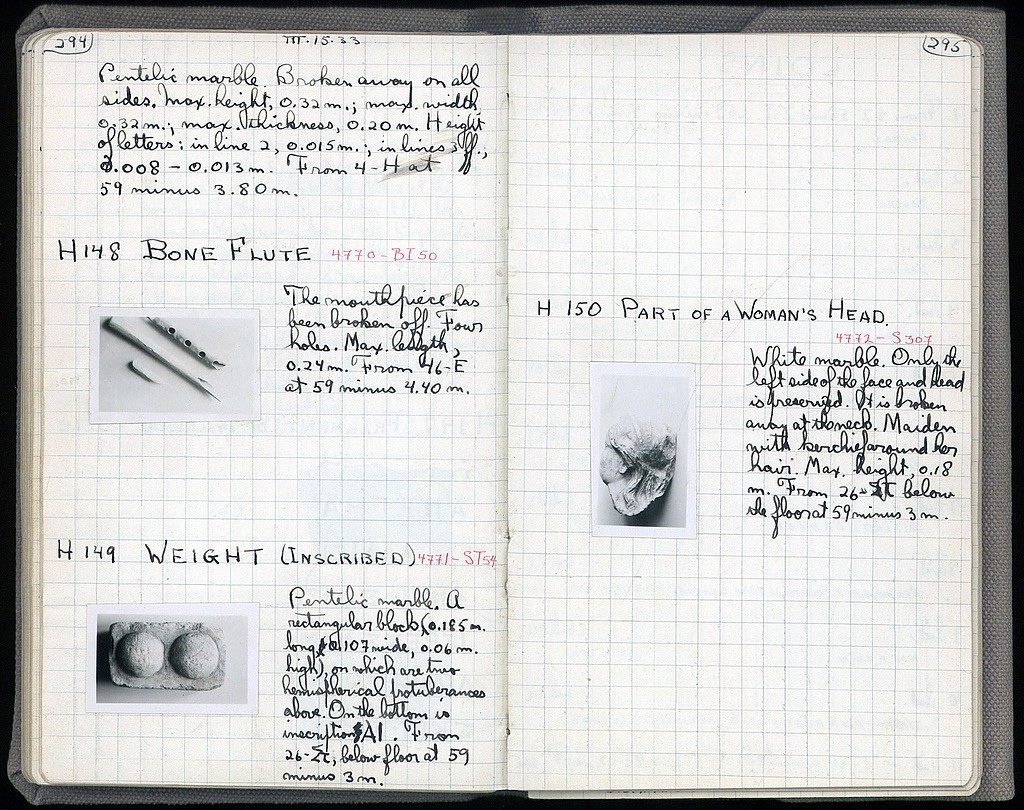 294
III.15.33
Pentelic marble. Broken away on all
sides. Max. height, 0.32 m.; max. width,
0.32 m.; max. thickness, 0.20 m. Height
of letters: in line 2, 0.015 m.; in lines 3 ff.,
0.008 – 0.013 m. From 4-H at
59 minus 3.80 m.
H 148 BONE FLUTE 4770-BI 50
The mouthpiece has
been broken off. Four
holes. Max. length,
0.24 m. From 46-E
at 59 minus 4.40 m.
H 149 WEIGHT (INSCRIBED) 4771-ST 54
Pentelic marble. A
rectangular block (0.185 m.
long, 0.107 wide, 0.06 m.
high), on which are two
hemispherical protuberances
above. On the bottom is
inscription AI. From
26-ΣΤ, below floor at 59
minus 3 m.
295
H 150 PART OF A WOMAN'S HEAD.
4772-S 307
White marble. Only the
left side of the face and head
is preserved. It is broken
away at the neck. Maiden
with kerchief around her
hair. Max. height, 0.18
m. From 26-ΣΤ below
the floor at 59 minus 3 m.